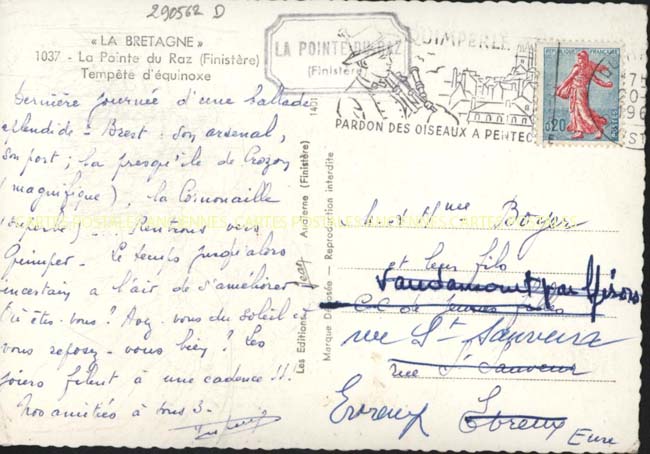 290562 D
« LA BRETAGNE »
1037 - La Pointe du Raz (Finistère)
Tempête d'équinoxe
LA POINTE DU RAZ
(Finistère)
QUIMPERLÉ
PARDON DES OISEAUX A PENTEC
REPUBLIQUE FRANÇAISE
0,20
POSTES
Dernière journée d'une ballade
splendide - Brest, son arsenal,
son port ; la presqu'île de Crozon
(magnifique), la Cornouaille
(superbe) - Rentrons vers
Quimper - Le temps jusqu'alors
incertain a l'air de s'améliorer
Où êtes-vous ? Avez-vous du soleil et
vous reposez-vous bien ? Les
jours filent à une cadence !!
Nos amitiés à tous 3 -
CARTES POSTALES ANCIENNES, CARTES POSTALES ANCIENNES, CARTES POSTALES ANCIENNES
1401
Les Editions Jean Audierne (Finistère)
Marque Déposée - Reproduction interdite
Mr et Mme Boyer
et leur fils
Vaudancourt par Gisors
C.C. de Jeunes Filles
rue St Sauveur
rue St Sauveur
Evreux
Evreux
Eure